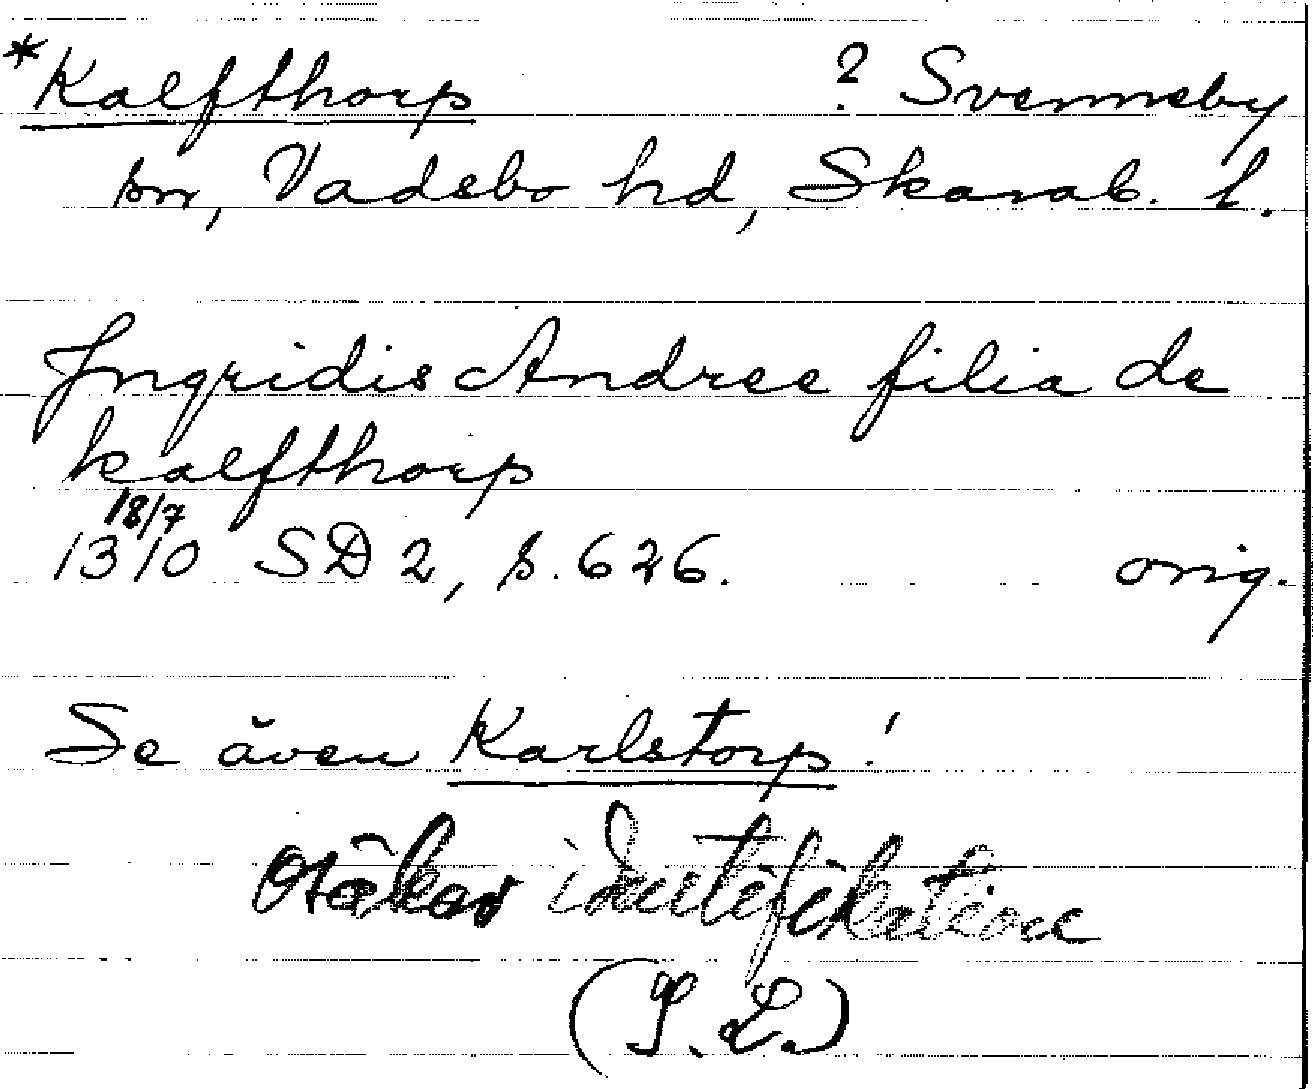 *Kalfthorp ? Svenneby
sn, Vadsbo hd, Skarab. l.
Jngridis Andree filia de
kalfthorp
18/7
1310 SD 2, s. 626. orig.
Se även Karlstorp!
Osäker identifikation
(I. L.)